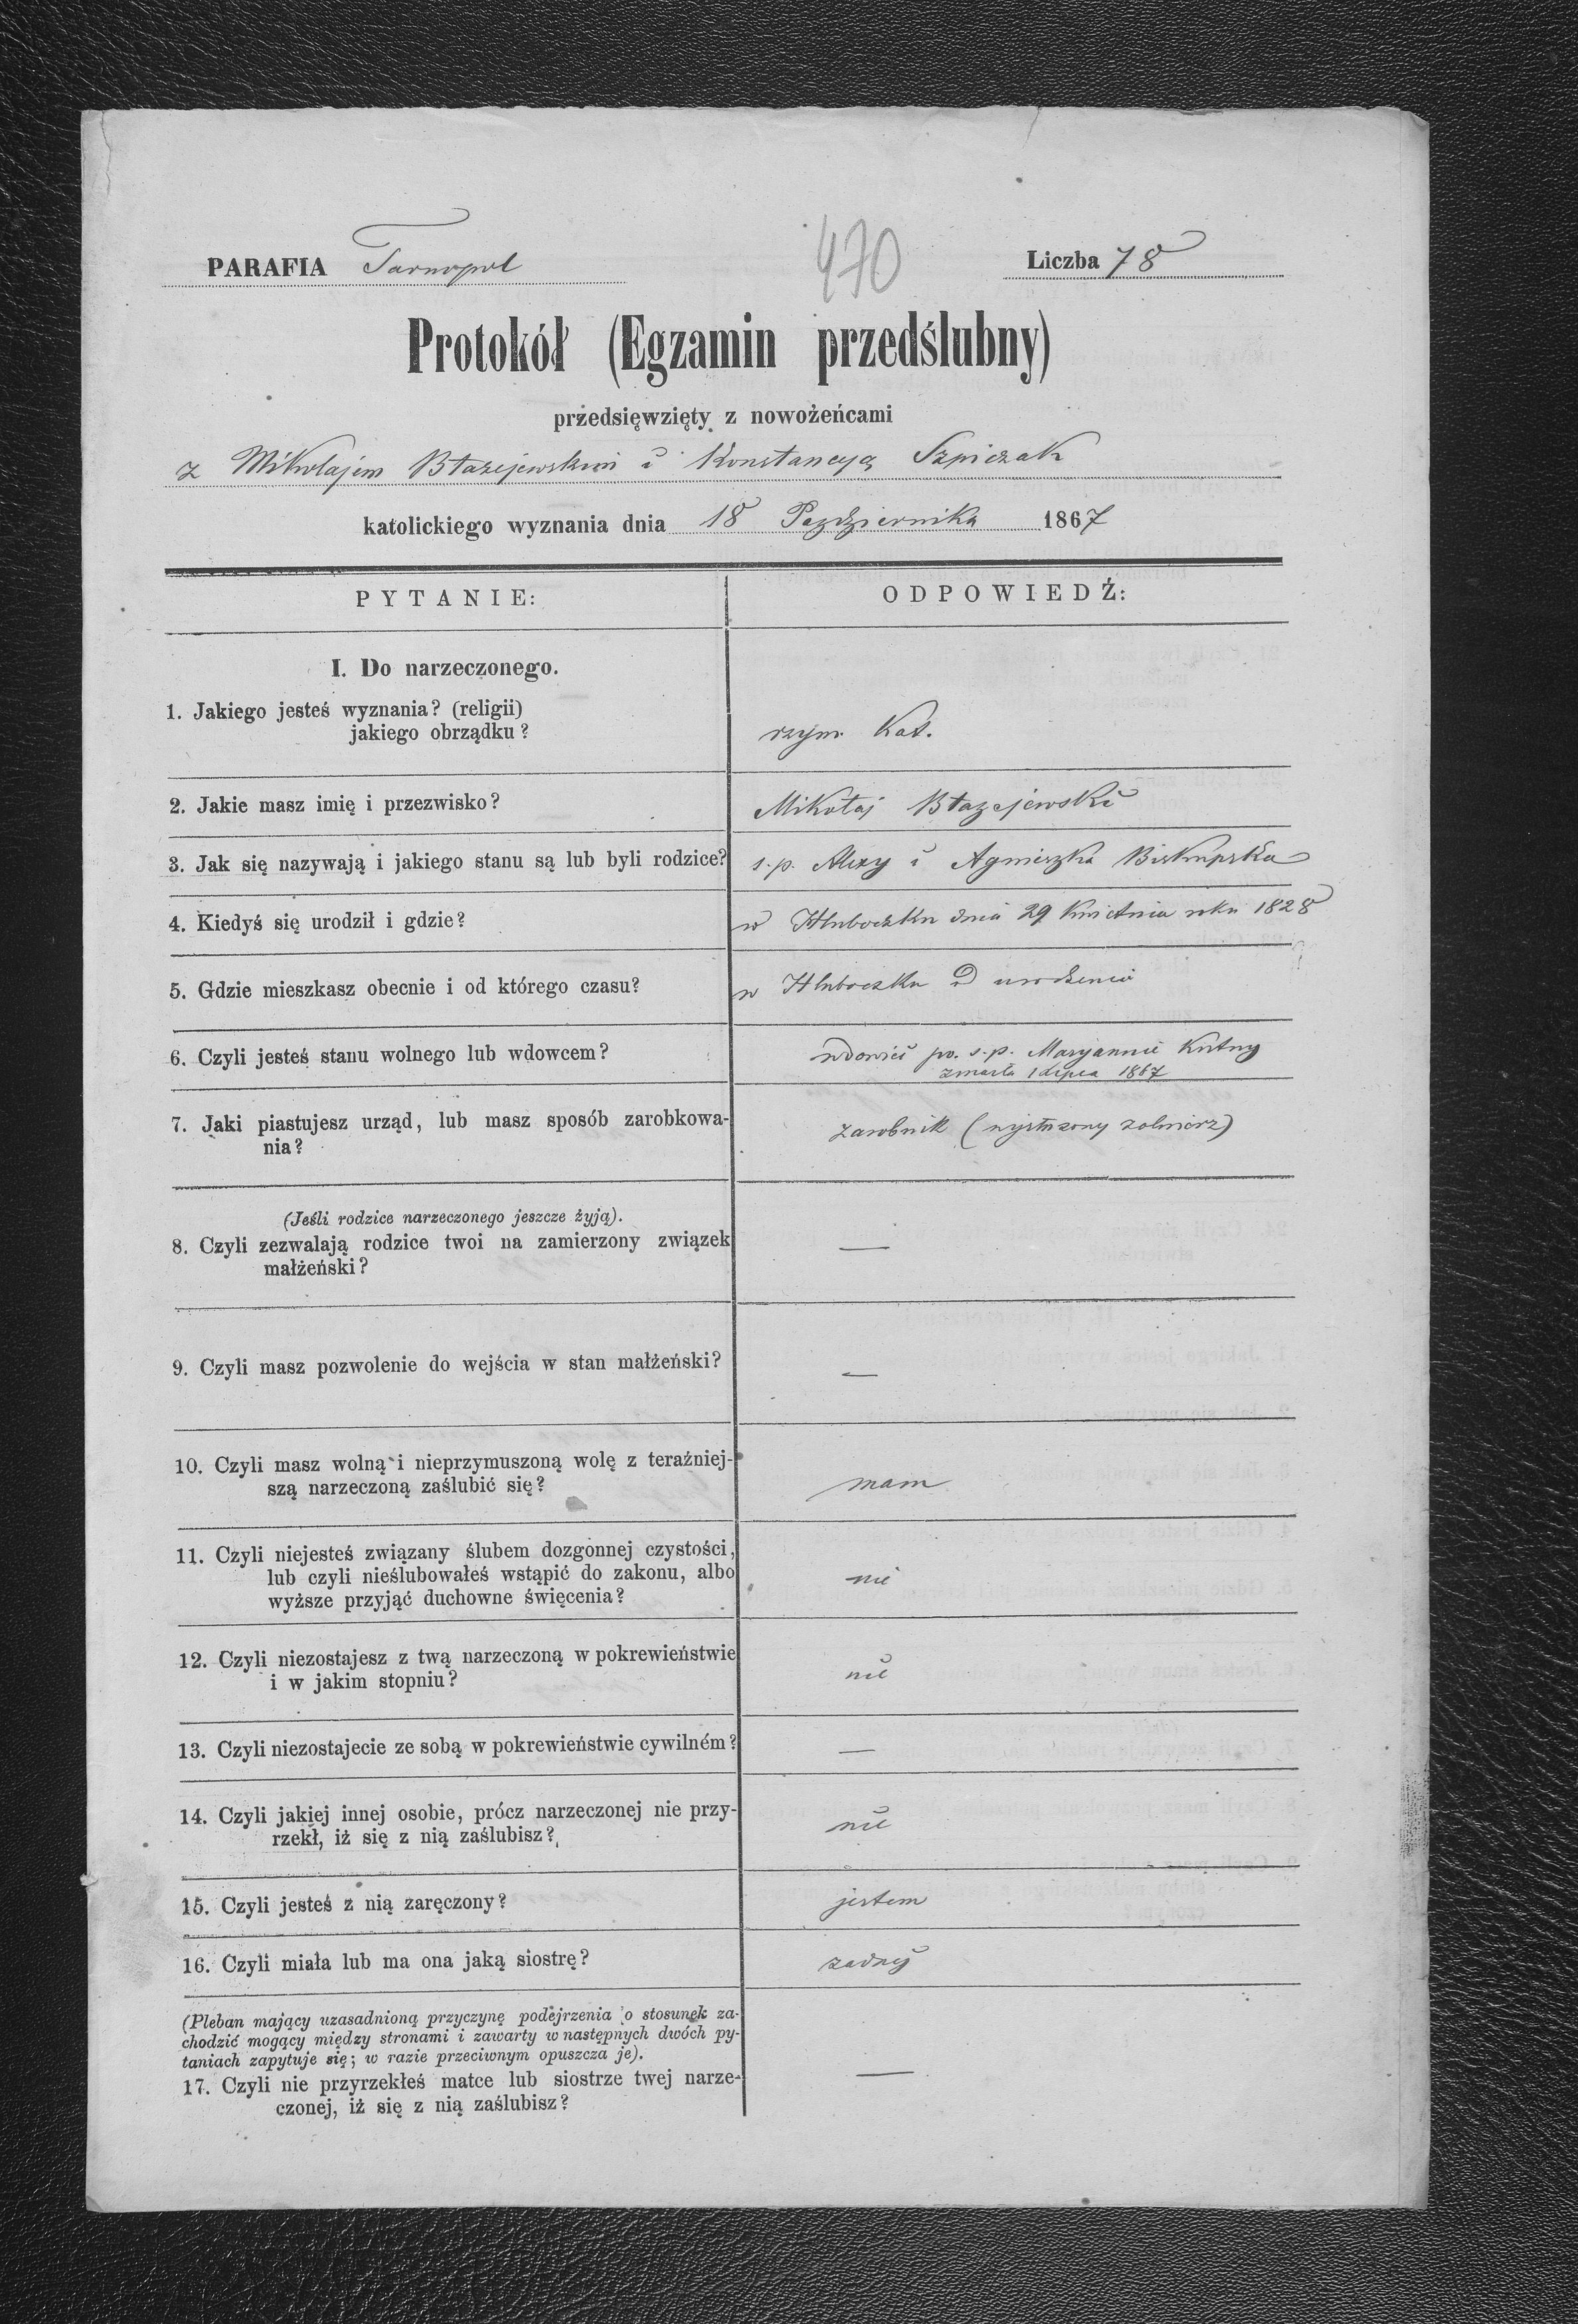 470
PARAFIA Tarnopol Liczba 78
Protokół (Egzamin przedślubny)
przedsięwzięty z nowożeńcami
z Mikołajem Błazejewskim i Konstancyą Szpiczak
katolickiego wyznania dnia 18 Pazdziernika 1867
PYTANIE: ODPOWIEDŹ:
I. Do narzeczonego.
1. Jakiego jesteś wyznania? (religii)
jakiego obrządku? rzym. Kat.
2. Jakie masz imię i przezwisko? Mikołaj Błazejewski
3. Jak się nazywają i jakiego stanu są lub byli rodzice? s.p. Alexy i Agnieszka Biskupska
4. Kiedyś się urodził i gdzie? w Hluboczku dnia 29 Kwietnia roku 1828
5. Gdzie mieszkasz obecnie i od którego czasu? w Hluboczku od urodzenia
6. Czyli jesteś stanu wolnego lub wdowcem? wdowiec po s.p. Maryannie Kutny
zmarła 1 Lipca 1867
7. Jaki piastujesz urząd, lub masz sposób zarobkowa-
nia? zarobnik (wysłuzony zolnierz)
(Jeśli rodzice narzeczonego jeszcze żyją).
8. Czyli zezwalają rodzice twoi na zamierzony związek —
małżeński?
9. Czyli masz pozwolenie do wejścia w stan małżeński? —
10. Czyli masz wolną i nieprzymuszoną wolę z teraźniej-
szą narzeczoną zaślubić się? mam
11. Czyli niejesteś związany ślubem dozgonnej czystości,
lub czyli nieślubowałeś wstąpić do zakonu, albo nie
wyższe przyjąć duchowne święcenia?
12. Czyli niezostajesz z twą narzeczoną w pokrewieństwie
i w jakim stopniu? nie
13. Czyli niezostajecie ze sobą w pokrewieństwie cywilném? —
14. Czyli jakiej innej osobie, prócz narzeczonej nie przy-
rzekł, iż się z nią zaślubisz? nie
15. Czyli jesteś z nią zaręczony? jestem
16. Czyli miała lub ma ona jaką siostrę? zadnej
(Pleban mający uzasadnioną przyczynę podejrzenia o stosunek za-
chodzić mogący między stronami i zawarty w następnych dwóch py-
taniach zapytuje się; w razie przeciwnym opuszcza je).
17. Czyli nie przyrzekłeś matce lub siostrze twej narze- —
czonej, iż się z nią zaślubisz?